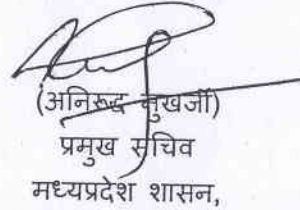 (अनिरूद्ध मुखर्जी)
प्रमुख सचिव
मध्यप्रदेश शासन,